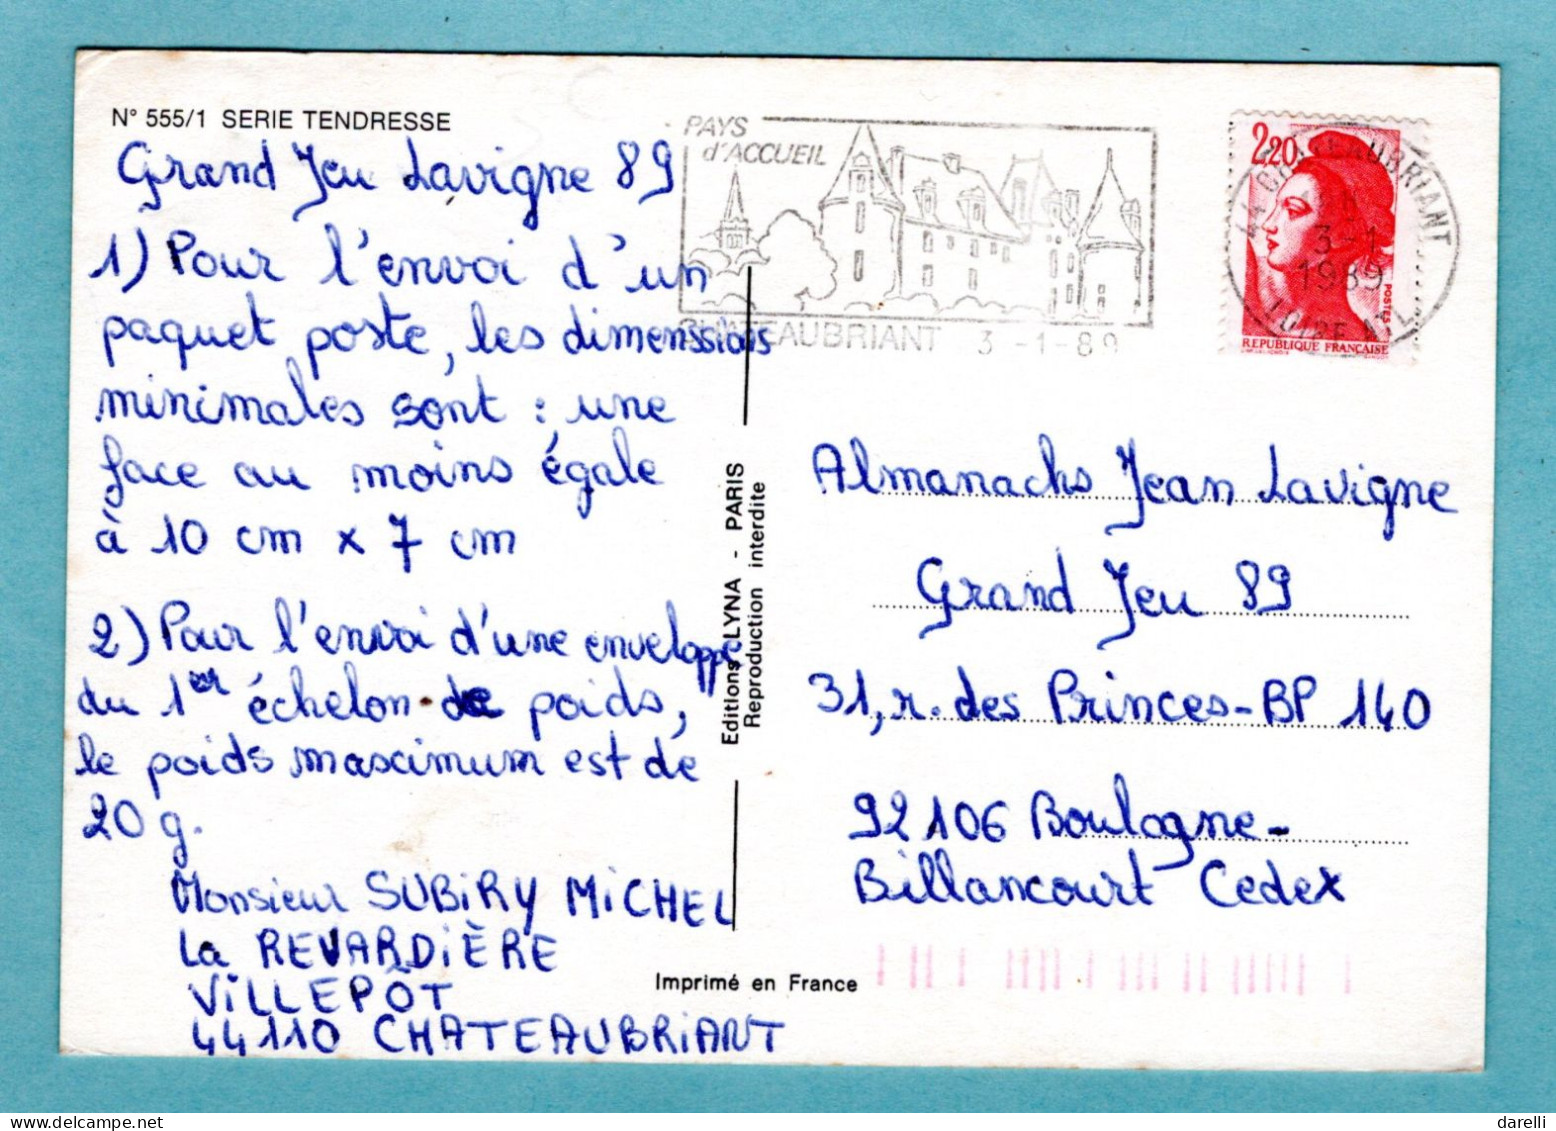 N° 555/1 SERIE TENDRESSE
Grand Jeu Lavigne 89
1) Pour l'envoi d'un
paquet poste, les dimenssions
minimales sont : une
face au moins égale
à 10 cm x 7 cm
2) Pour l'envoi d'une enveloppe
du 1er échelon de poids,
le poids maximum est de
20 g.
Monsieur SUBIRY MICHEL
La REVARDIÈRE
VILLEPÔT
44110 CHATEAUBRIANT
Editions LYNA - PARIS
Reproduction interdite
Imprimé en France
PAYS
d'ACCUEIL
CHATEAUBRIANT 3 -1-89
2,20
POSTES
REPUBLIQUE FRANÇAISE
44 CHATEAUBRIANT
3-1
1989
LOIRE ATL
Almanachs Jean Lavigne
Grand Jeu 89
31, r. des Princes-BP 140
92106 Boulogne-
Billancourt Cedex
darelli
delcampe.net